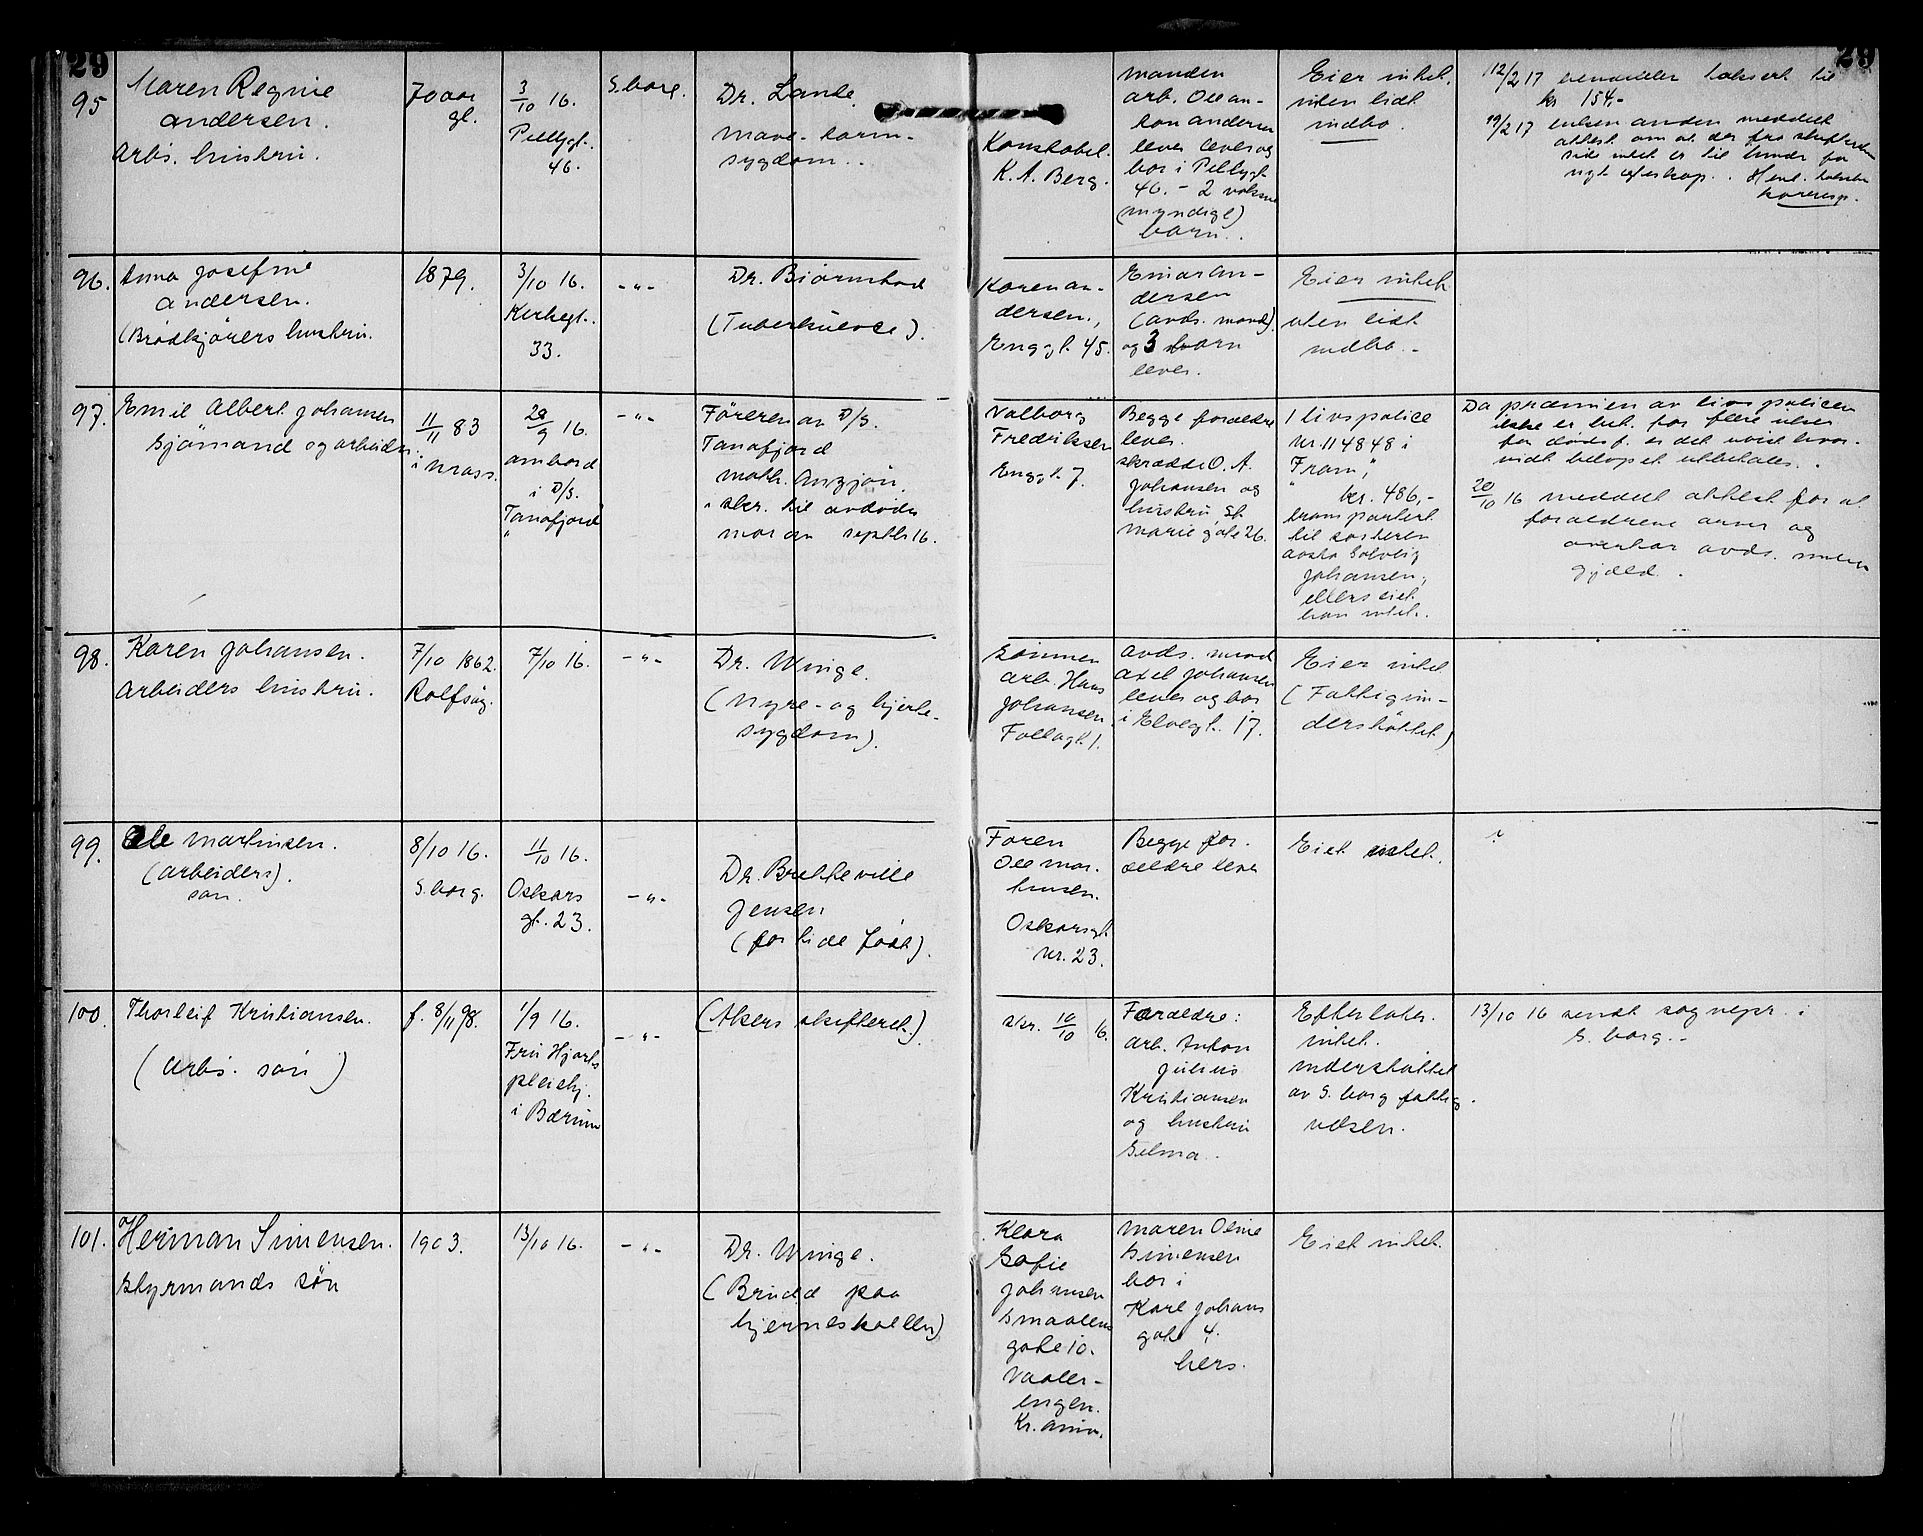 29
29
95
Maren Regine
Andersen.
Arbs. hustru.
70 aar
gl.
3/10 16.
Pellygt.
46.
S.borg.
Dr. Lande.
Mave-tarm-
sygdom.
Konstabel
K. A. Berg.
Manden
arb. Ole An-
ton Andersen
lever og
bor i Pellygt.
46. - 2 voksne
(myndige)
barn.
Eier intet
uten lidt
indbo.
12/2 17 eiendeler taksert til
kr 154,-
19/2 17 enkem anden meddelt
attest om at der fra skifterettens
side intet er til hinder for
nyt egteskap. Henl. takster
korresp.
96.
Anna Josefine
Andersen.
(Brødkjørers hustru.
1879.
3/10 16.
Kirkegt.
33.
-"-
Dr. Bjørnstad
(Tuberkulose).
Karen An-
dersen,
Enggt. 45.
Einar An-
dersen
(avds. mand)
og 3 barn
lever.
Eier intet
uten lidt
indbo.-
97.
Emil Albert Johansen
Sjømand og arbeider.
11/11 83
i Moss.
29/9 16.
ombord
i D/S.
"Tanafjord"
-"-
Føreren av D/S.
Tanafjord
Math. Anzjøn
i skr. til avdødes
mor av septbr 16.
Valborg
Fredriksen
Enggt. 7.
Begge forældre
lever.
skrædder O. A.
Johansen og
hustru, St.
Marie gate 26.
1 livspolice
nr. 114848 i
"Fram",
kr. 486,-
transportert
til søsteren
Aasta Solveig
Johansen,
ellers eiet
han intet.
Da præmien av livspolicen
ikke er bet. for flere uker
før dødsf. er det uvist hvor-
vidt beløpet utbetales.
20/10 16 meddelt attest for at
forældrene arver og
overtar avds. mulige
gjæld.
98.
Karen Johansen.
Arbeiders hustru.
7/10 1862.
Rolfsøy.
7/10 16.
-"-
Dr. Winge.
(Nyre- og hjerte-
sygdom).
Sønnen
arb. Hans
Johansen
Follogt. 1.
Avds. mand
Axel Johansen
lever og bor
i Elvegt. 17.
Eier intet
(Fattigun-
derstøttet)
99.
Ole Martinsen.
(Arbeiders).
søn.
8/10 16.
S.borg.
11/10 16.
Oskars
gt. 23.
-"-
Dr. Bretteville
Jensen
(for tidl. født).
Faren
Ole Mar-
tinsen.
Oskarsgt.
nr. 23.
Begge for-
ældre lever
Eiet intet.
100.
Thorleif Kristiansen.
(Arbs. søn)
f. 8/11 98.
1/9 16.
Fru Hjorts
pleiehj.
i Bærum
-"-
(Akers skifteret.)
skr. 10/10 16.
Forældre:
Arb. Anton
Julius
Kristiansen
og hustru
Selma.
Efterlater
intet.
understøttet
av S.borg fattig
væsen.
13/10 16 sendt sognepr. i
S.borg.-
101.
Herman Simensen.
Styrmands søn
1903.
13/10 16.
-"-
Dr. Winge.
(Brudd paa
hjerneskallen)
Klara
Sofie
Johansen
Smaalens
gate 10.
Vaaler-
engen.
Kr.ania.
Maren Oline
Simensen
bor i
Karl Johans
gate 4.
hers.
Eiet intet.